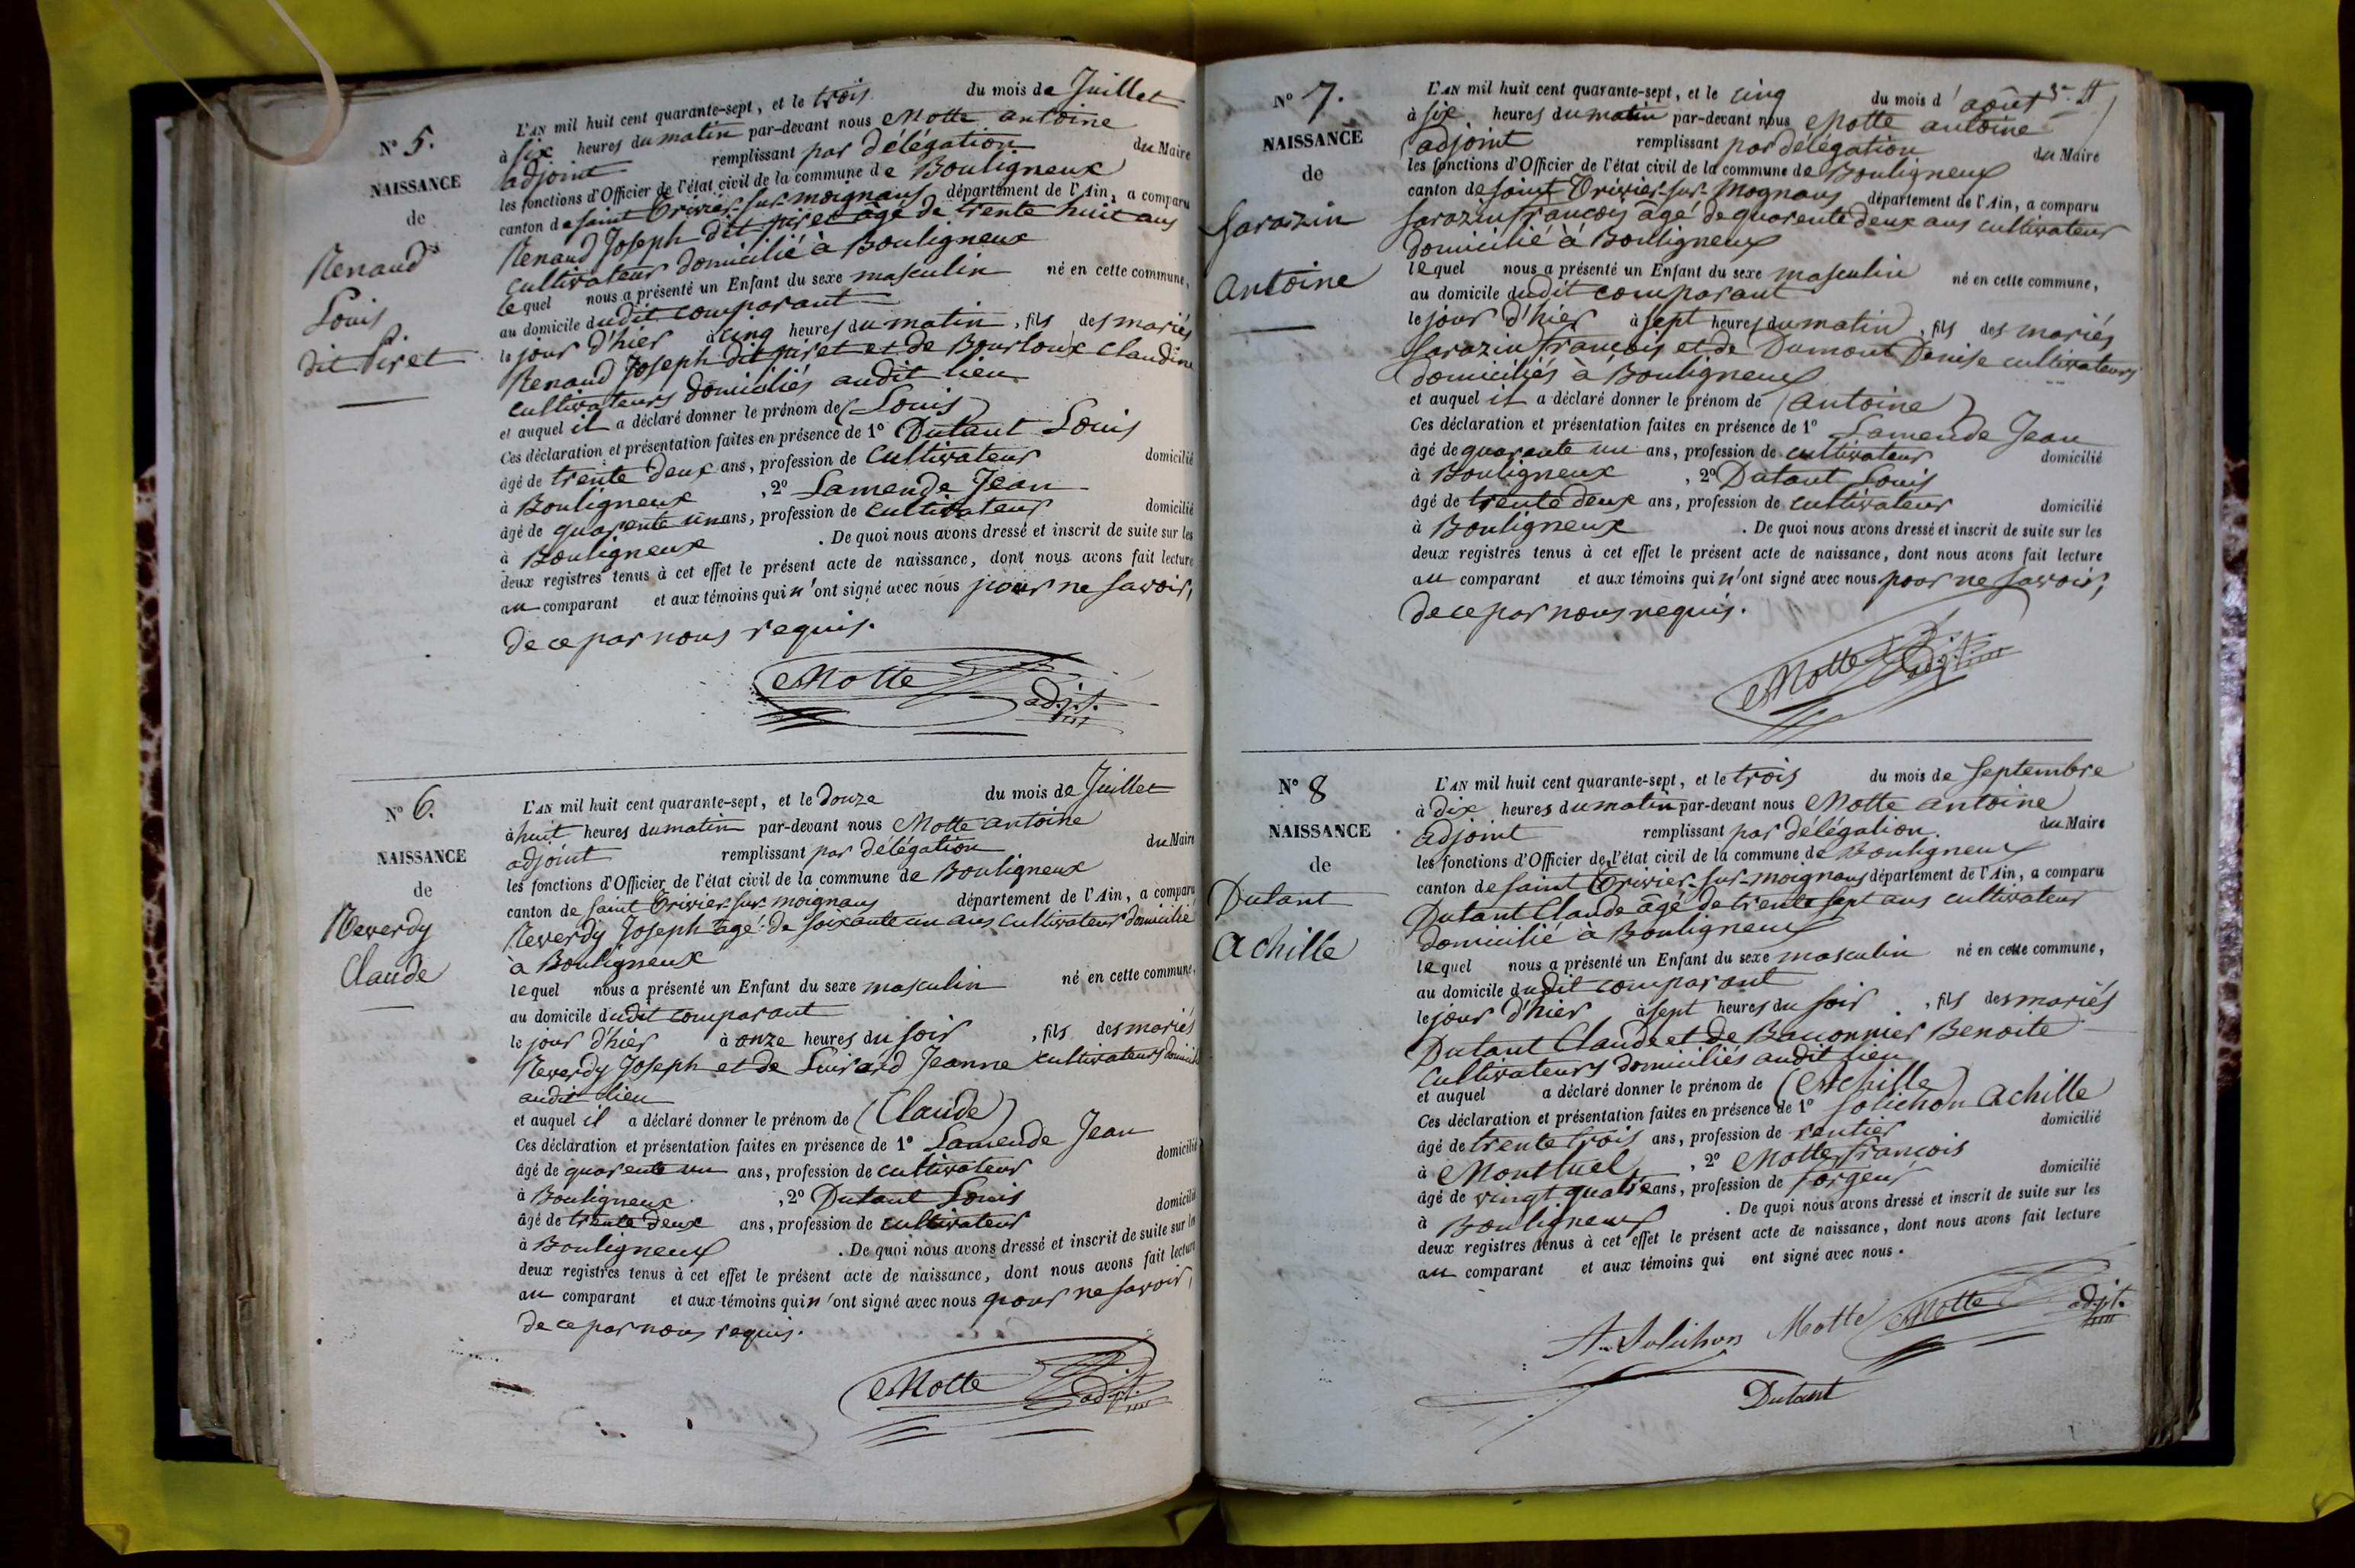 N° 5.
NAISSANCE
de
Renaud
Louis
dit Piret
L'AN mil huit cent quarante-sept, et le trois du mois de Juillet
à six heures du matin par-devant nous Motte antoine
adjoint remplissant par délégation du Maire
les fonctions d'Officier de l'état civil de la commune de Bouligneux
canton de saint Trivier-sur-moignans, département de l'Ain, a comparu
Renaud Joseph dit piret âgé de trente huit ans
cultivateur domicilié à Bouligneux
lequel nous a présenté un Enfant du sexe masculin né en cette commune,
au domicile dudit comparant
le jour d'hier à cinq heures du matin, fils des mariés
Renaud Joseph dit piret et de Bourloux Claudine
cultivateurs domiciliés audit lieu
et auquel il a déclaré donner le prénom de (Louis)
Ces déclaration et présentation faites en présence de 1° Dutant Louis
âgé de trente deux ans, profession de cultivateur domicilié
à Bouligneux, 2° Lamende Jean
âgé de quarente un ans, profession de cultivateur domicilié
à Bouligneux. De quoi nous avons dressé et inscrit de suite sur les
deux registres tenus à cet effet le présent acte de naissance, dont nous avons fait lecture
au comparant et aux témoins qui n'ont signé avec nous pour ne savoir,
de ce par nous requis.
Motte adjt.
N° 6.
NAISSANCE
de
Reverdy
Claude
L'AN mil huit cent quarante-sept, et le douze du mois de Juillet
à huit heures du matin par-devant nous Motte antoine
adjoint remplissant par délégation du Maire
les fonctions d'Officier de l'état civil de la commune de Bouligneux
canton de saint Trivier-sur-moignans département de l'Ain, a comparu
Reverdy Joseph âgé de soixante un ans cultivateur domicilié
à Bouligneux
lequel nous a présenté un Enfant du sexe masculin né en cette commune,
au domicile dudit comparant
le jour d'hier à onze heures du soir, fils des mariés
Reverdy Joseph et de Luirard Jeanne cultivateurs
audit lieu
et auquel il a déclaré donner le prénom de (Claude)
Ces déclaration et présentation faites en présence de 1° Lamende Jean
âgé de quarente un ans, profession de cultivateur domicilié
à Bouligneux, 2° Dutant Louis
âgé de trente deux ans, profession de cultivateur domicilié
à Bouligneux. De quoi nous avons dressé et inscrit de suite sur les
deux registres tenus à cet effet le présent acte de naissance, dont nous avons fait lecture
au comparant et aux témoins qui n'ont signé avec nous pour ne savoir,
de ce par nous requis.
Motte adjt.
N° 7.
NAISSANCE
de
Sarazin
antoine
L'AN mil huit cent quarante-sept, et le cinq du mois d'août
à six heures du matin par-devant nous Motte antoine
adjoint remplissant par délégation du Maire
les fonctions d'Officier de l'état civil de la commune de Bouligneux
canton de saint Trivier-sur-Mognans département de l'Ain, a comparu
Sarazin françois âgé de quarente deux ans cultivateur
domicilié à Bouligneux
lequel nous a présenté un Enfant du sexe masculin né en cette commune,
au domicile dudit comparant
le jour d'hier à sept heures du matin, fils des mariés
Sarazin françois et de Dumont Denise cultivateurs
domiciliés à Bouligneux
et auquel il a déclaré donner le prénom de (antoine)
Ces déclaration et présentation faites en présence de 1° Lamende Jean
âgé de quarante un ans, profession de cultivateur domicilié
à Bouligneux, 2° Dutant Louis
âgé de trente deux ans, profession de cultivateur domicilié
à Bouligneux. De quoi nous avons dressé et inscrit de suite sur les
deux registres tenus à cet effet le présent acte de naissance, dont nous avons fait lecture
au comparant et aux témoins qui n'ont signé avec nous pour ne savoir,
de ce par nous requis.
Motte adjt.
N° 8
NAISSANCE
de
Dutant
achille
L'AN mil huit cent quarante-sept, et le trois du mois de septembre
à dix heures du matin par-devant nous Motte antoine
adjoint remplissant par délégation. du Maire
les fonctions d'Officier de l'état civil de la commune de Bouligneux
canton de saint Trivier-sur-moignans département de l'Ain, a comparu
Dutant Claude âgé de trente sept ans cultivateur
domicilié à Bouligneux
lequel nous a présenté un Enfant du sexe masculin né en cette commune,
au domicile dudit comparant
le jour d'hier à sept heures du soir, fils des mariés
Dutant Claude et de Baconnier Benoite
cultivateurs domiciliés audit lieu
et auquel a déclaré donner le prénom de (Achille)
Ces déclaration et présentation faites en présence de 1° Solichon achille
âgé de trente trois ans, profession de rentier domicilié
à Montluel, 2° Motte françois
âgé de vingt quatre ans, profession de forgeur domicilié
à Bouligneux. De quoi nous avons dressé et inscrit de suite sur les
deux registres tenus à cet effet le présent acte de naissance, dont nous avons fait lecture
au comparant et aux témoins qui ont signé avec nous.
A. Solichon Motte Motte adjt.
Dutant